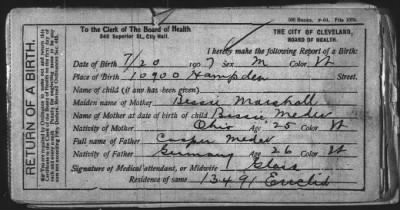 500 Books.
To the Clerk of The Board of Health
546 Superior St., City Hall.
THE CITY OF CLEVELAND,
BOARD OF HEALTH.
I hereby make the following Report of a Birth:
RETURN OF A BIRTH.
Date of Birth 7/20 1907 Sex M Color W
Place of Birth 10900 Hampden Street.
Name of child (if any has been given)
Maiden name of Mother Bessie Marshall
Name of Mother at date of birth of child Bessie Meder
Nativity of Mother Ohio Age 25 Color W
Full name of Father Casper Meder
Nativity of Father Germany Age 26 Color W
Signature of Medical attendant, or Midwife
Residence of same 13491 Euclid